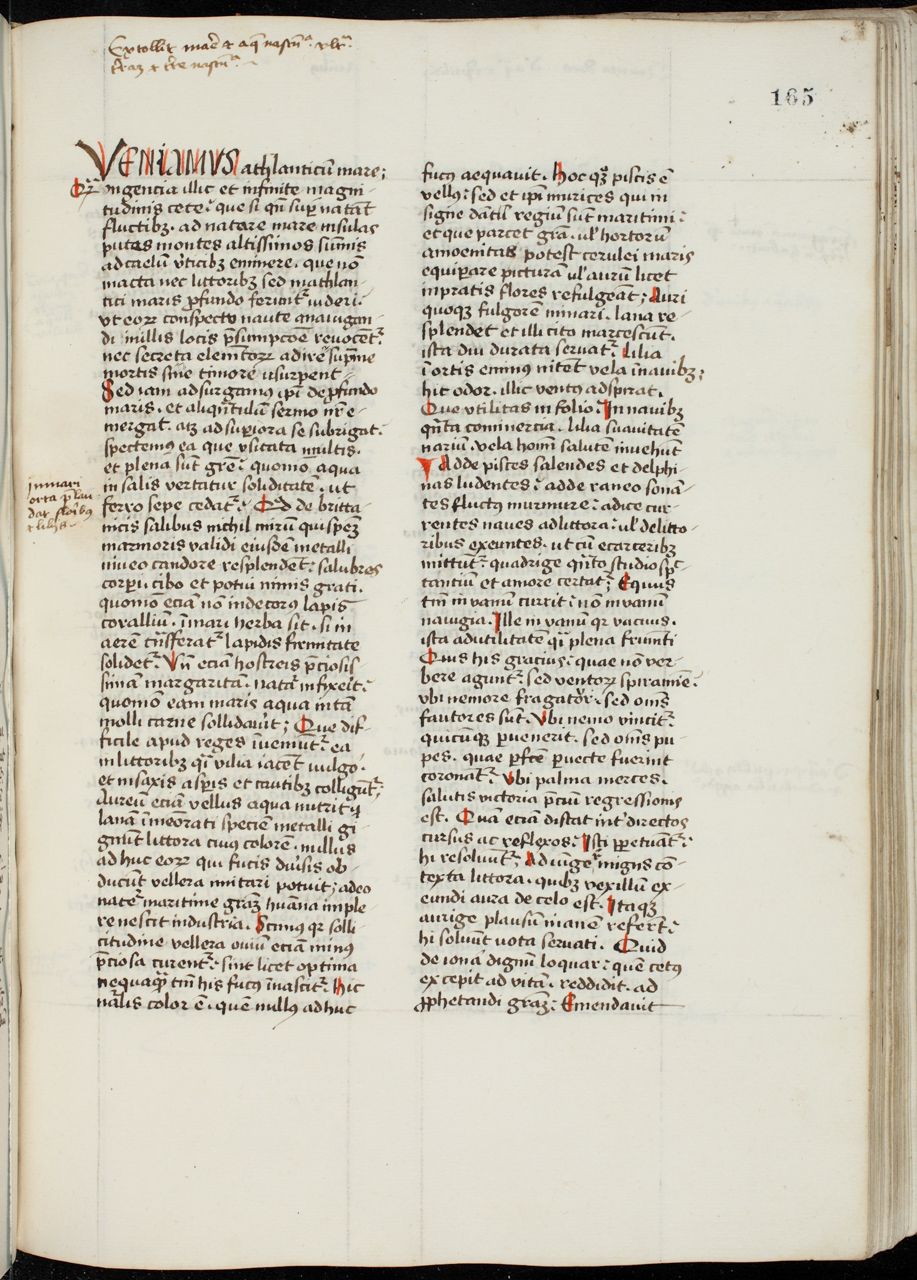 Extollit mar̃ & aq̃ nascũᵃ
t̃raȝ & t̃re nascũᵃ
165
VENiAMVS athlanticũ mare;
ingencia illic et infinite magni-
tudinis cete: que si qñ sup̱ natãt
fluctibȝ. ad natare mare insulas
putes montes altissimos sum̃is
ad caelũ v̾ticibȝ eminere. que nõ
in acta nec littoribȝ sed in athlan-
tici maris p̱fundo ferũt᷑ uideri.
vt eoꝝ conspectu naute anauigan-
di in illis locis p̱sumpcõe reuocent᷑.
nec secreta elemẽtoꝝ adire sup̱me
mortis sine timore usurpent-
Sed iam ad surgamꝰ ip̃i de p̱fundo
maris. et aliqñtulũ sermo nr̃ e-
mergat. atqȝ ad sup̱iora se subrigat.
spectemꝰ ea que vsitata multis.
et plena sũt gr̃e: quomõ aqua
in salis vertatur soliditatẽ. ut
ferro sepe cedat᷑: Qd̃ de britta-
nicis salibus nichil mirũ qui speȝ
marmoris validi eiusdẽ metalli
niueo candore resplendet: salubres
corp̱u cibo et potui nimis grati.
quomõ eciã nõ indecorꝰ lapis
corallium. ĩ mari herba sit. si in
aerẽ trãsferat᷑ lapidis firmitate
solidet᷑. Vñ eciã hostreis p̃ciosis-
simã margaritã. natã infixerit:
quomõ eam maris aqua in tã
molli carne sollidauit; Que dif-
ficile apud reges ĩueniũt᷑ ea
in littoribȝ q̃i vilia iacẽt uulgo.
et in saxis asp̱is et cautibȝ colligũt᷑;
Aureũ eciã vellus aqua nutrit &
lanã ĩ meorati speciẽ metalli gi-
gnũt littora cuiꝰ colorẽ. nullus
ad huc eoꝝ qui fucis diu̾sis ob-
ducũt vellera imitari potuit; adeo
nat᷑e maritime graȝ huãna imple
re nescit industria. Scimꝰ qꝛ solli
citudine vellera ouiũ eciã minꝰ
p̃ciosa curent᷑: sint licet optima
nequaq̃ tm̃ his fucꝰ ĩnascit᷑. Hic
nãlis color ẽ. quẽ nullꝰ ad huc
In mari
orta p̱ lau
dat floribꝰ
fucꝰ aequauit. Hoc qȝ piscis ẽ
vellꝰ: sed et ip̃i murices qui in
signe dãt il regiũ sũt maritimi:
et que parcet grã. ul̾ hortorũ
amoenitas potest cerulei maris
equip̱are picturã ul̾ aurũ licet
in pratis flores refulgeãt; Auri
quoqȝ fulgorẽ minari. lana re-
splendet et illi cito marcescũt.
ista diu durata seruat᷑. Lilia
ĩ ortis eminꝰ nitẽt vela ĩ nauibȝ;
hic odor. illic ventꝰ adspirat.
Que vtilitas in folio: In nauibȝ
qñta com̃ercia. lilia suauitatẽ
nariũ. vela hom̃ salutẽ inuehũt
Adde pisces salendes et delphi-
nas ludentes: adde raneo sonã-
tes fluctꝰ murmure: adice cur-
rentes naues ad littora: ul̾ de litto-
ribus exeuntes. ut cũ e carceribȝ
mittũt᷑: quadrige qñto studio sp̱c-
tantiũ et amore certat᷑; Equus
tm̃ in vanũ currit: nõ in vanũ
nauigia. Ille in vanũ qꝛ vacuus.
ista ad utilitatẽ q̃i plena frumẽti
Quis his gracius: quae nõ ver-
bere agunt᷑: sed ventoꝝ spiramie.
vbi nemore fragator. sed om̃s
fautores sũt. Vbi nemo vincit᷑
quicũqȝ p̱uenerit. sed om̃s pu-
pes. quae p̱fcẽ p̱uecte fuerint
coronat᷑. Vbi palma merces.
salutis victoria p̃ciũ regressionis
est. Quã eciã distat int̾ directos
cursus ac reflexos: Isti pp̱etuãt᷑:
hi resoluũt᷑; Adiunge cõ-
texta littora. quibȝ vexillũ ex-
eundi aura de celo est. Itaqȝ
aurige plausum inanẽ refert᷑:
hi soluũt uota seruati. Quid
de iona dignũ loquar: quẽ cetꝰ
excepit ad vitã. reddidit. ad
ꝓphetandi graȝ: Emendauit